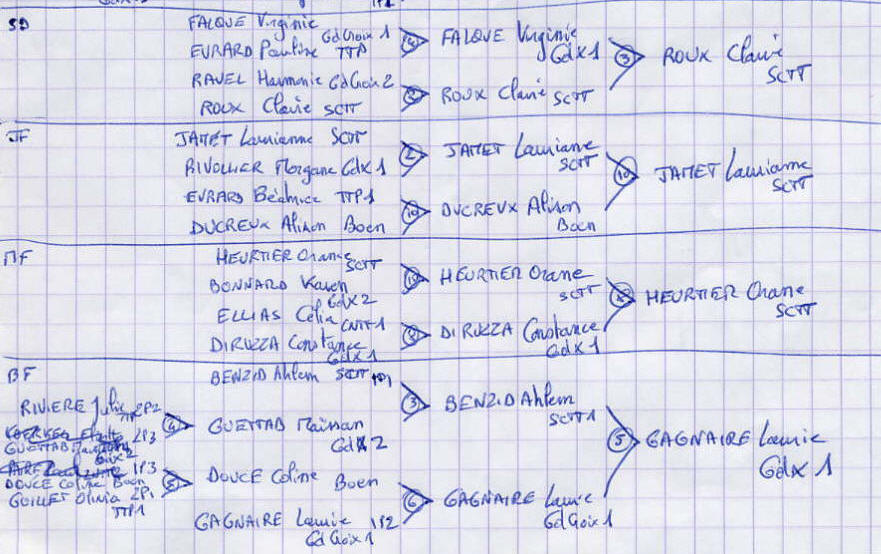 SD
FALQUE Virginie
Gd Croix 1
EVRARD Pauline TTP
RAVEL Harmonie Gd Croix 2
ROUX Claire SCTT
FALQUE Virginie
Gdx 1
2
ROUX Claire SCTT
3
ROUX Claire
SCTT
JF
JAMET Laurianne SCTT
RIVOLLIER Morgane Gdx 1
EVRARD Béatrice TTP1
DUCREUX Alison Boen
2
JAMET Laurianne
SCTT
10
DUCREUX Alison
Boen
10
JAMET Laurianne
SCTT
MF
HEURTIER Orane
SCTT
BONNARD Karen
Gdx 2
ELLIAS Célia
DIRUZZA Constance
Gdx 1
HEURTIER Orane
SCTT
8
DIRUZZA Constance
Gdx 1
HEURTIER Orane
SCTT
BF
BENZID Ahlem SCTT
RIVIERE Julie 2P2
TTP
2P3
GUETTAB
Gdx 2
1P3
DOUCE Coline Boen
GUILLET Olivia 2P1
TTP1
4
GUETTAB Maissan
Gdx 2
5
DOUCE Coline Boen
GAGNAIRE Laurie 1P2
Gd Croix 1
3
BENZID Ahlem
SCTT 1
6
GAGNAIRE Laurie
Gd Croix 1
5
GAGNAIRE Laurie
Gdx 1